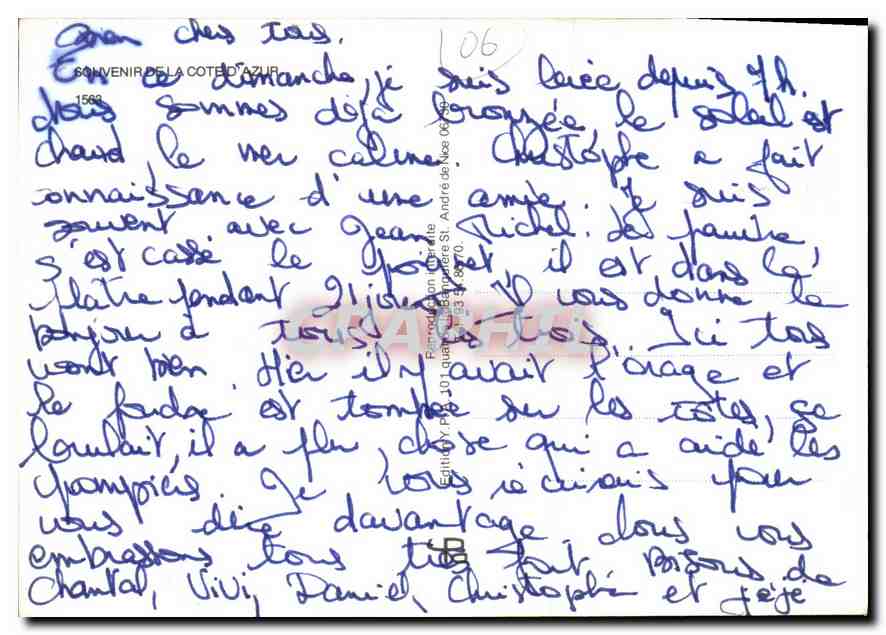 Bien chers tous.
06
SOUVENIR DE LA COTE D'AZUR
1563
En ce dimanche, je suis levée depuis 7h.
Nous sommes déjà bronzée, le soleil est
chaud la mer calme. Christophe a fait
connaissance d'une amie. Je suis
souvent avec Jean Michel. Le pauvre
s'est cassé le poignet il est dans le
plâtre pendant 21 jours. Il vous donne le
bonjour à tous les trois. Ici tous
vont bien. Hier il y avait l'orage et
la foudre est tombée sur les côtes, ça
brulait, il a plu, chose qui a aidé les
pompiers. Je vous écrirais pour
vous dire davantage. Nous vous
embrassons tous très fort. Bisous de
Chantal, Vivi, Daniel, Christophe et Jéjé
Reproduction interdite
101 quai de la Banquière St. André de Nice 06730
GRAPHIL